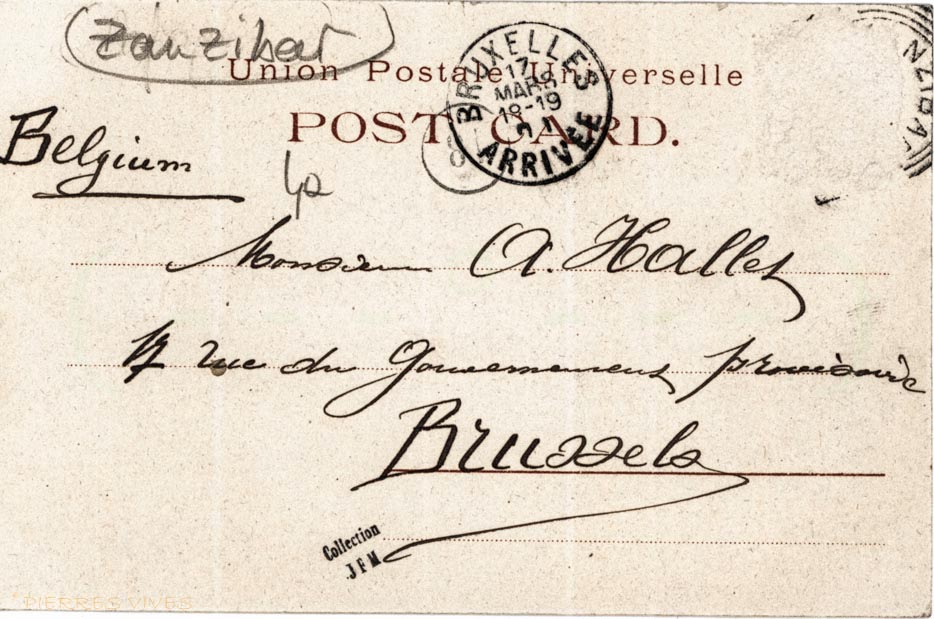 Zanzibar
Union Postale Universelle
POST CARD.
BRUXELLES
17
MARS
18-19
ARRIVÉE
NZIBA
Belgium
Monsieur A. Hallet
rue du Gouvernement provisoire
Brussels
Collection
J F M
PIERRES VIVES